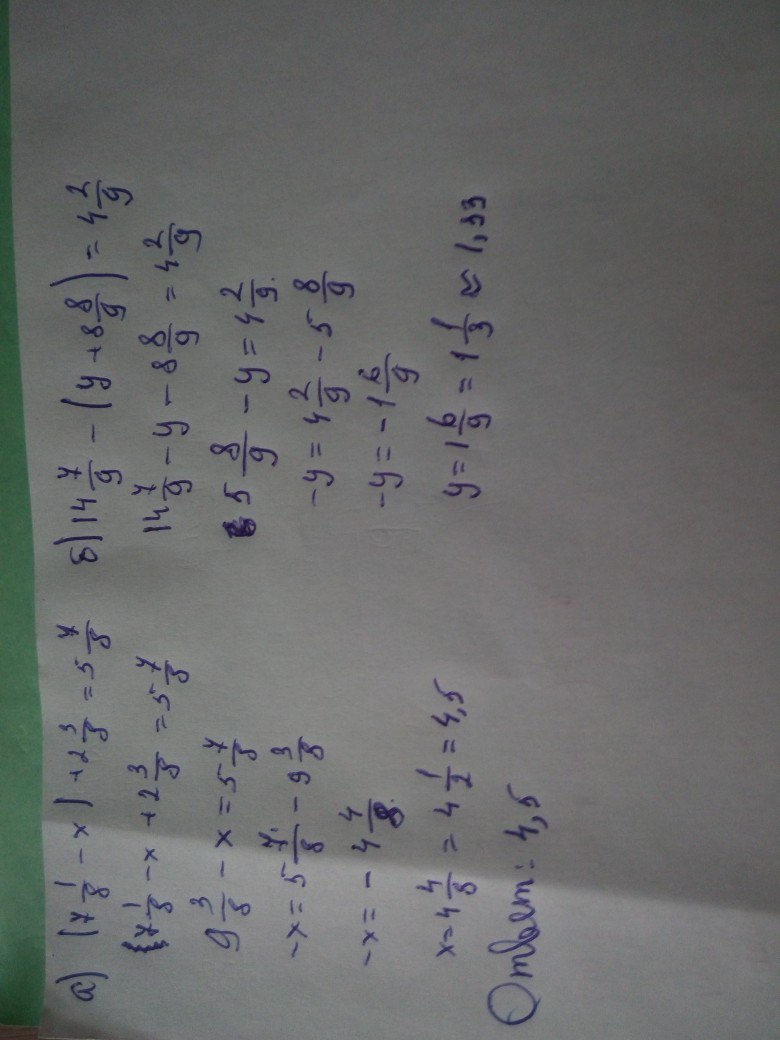 а) (7 1/8 - x) + 2 3/8 = 5 7/8
7 1/8 - x + 2 3/8 = 5 7/8
9 3/8 - x = 5 7/8
-x = 5 7/8 - 9 3/8
-x = -4 4/8
x = 4 4/8 = 4 1/2 = 4,5
Ответ: 4,5
б) 14 7/9 - (y + 8 8/9) = 4 2/9
14 7/9 - y - 8 8/9 = 4 2/9
5 8/9 - y = 4 2/9
-y = 4 2/9 - 5 8/9
-y = -1 6/9
y = 1 6/9 = 1 1/3 ≈ 1,33